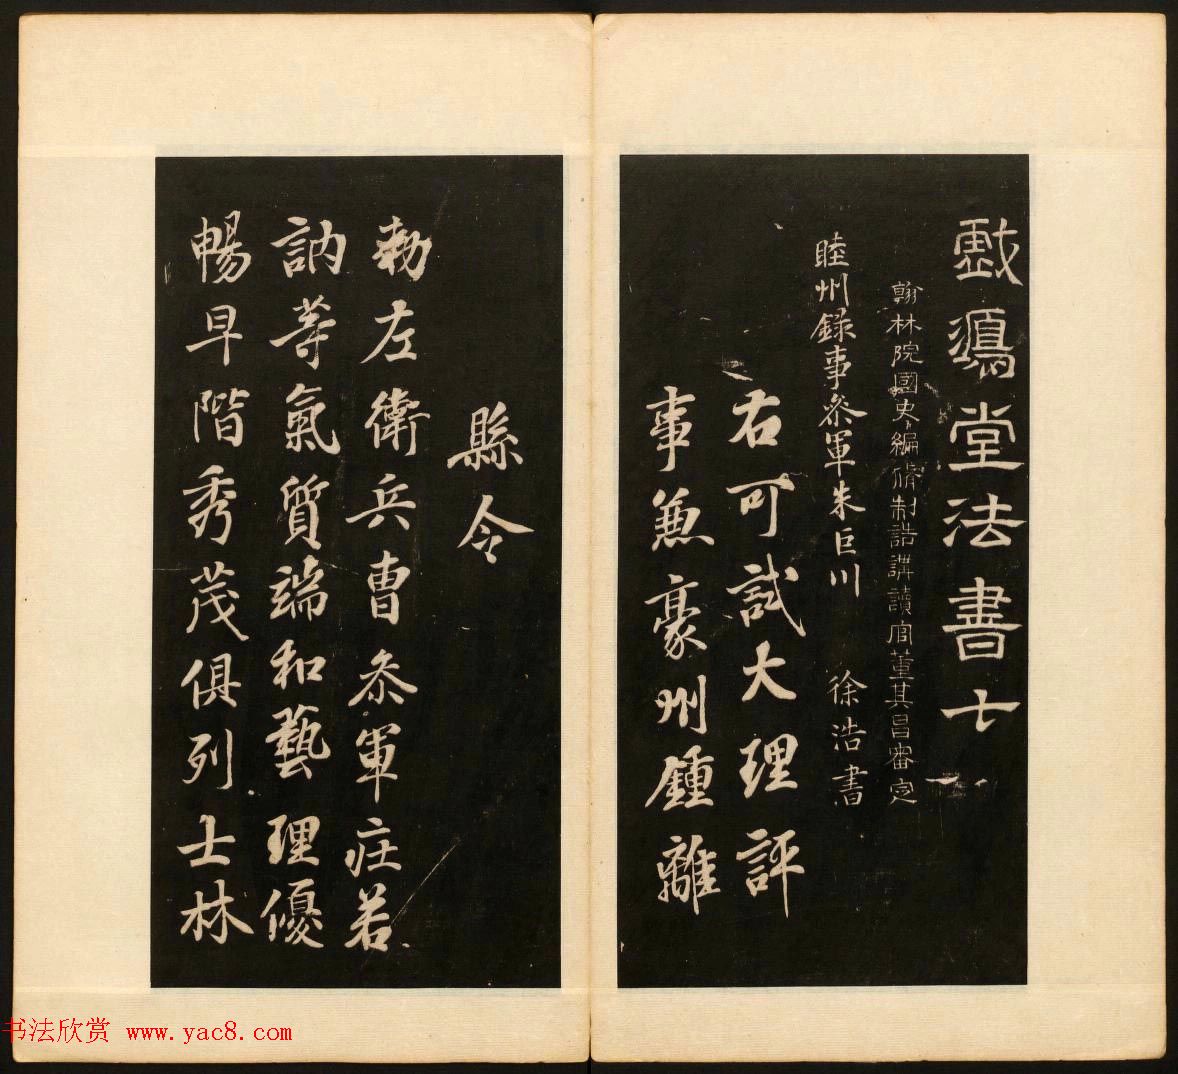 戲鴻堂法書七
翰林院國史編脩制誥講讀官董其昌審定
睦州録事叅軍朱巨川 徐浩書
右可試大理評
事兼豪州鍾離
縣令
勑左衛兵曹叅軍莊若
訥等氣質端和藝理優
暢早階秀茂俱列士林
书法欣赏 www.yac8.com